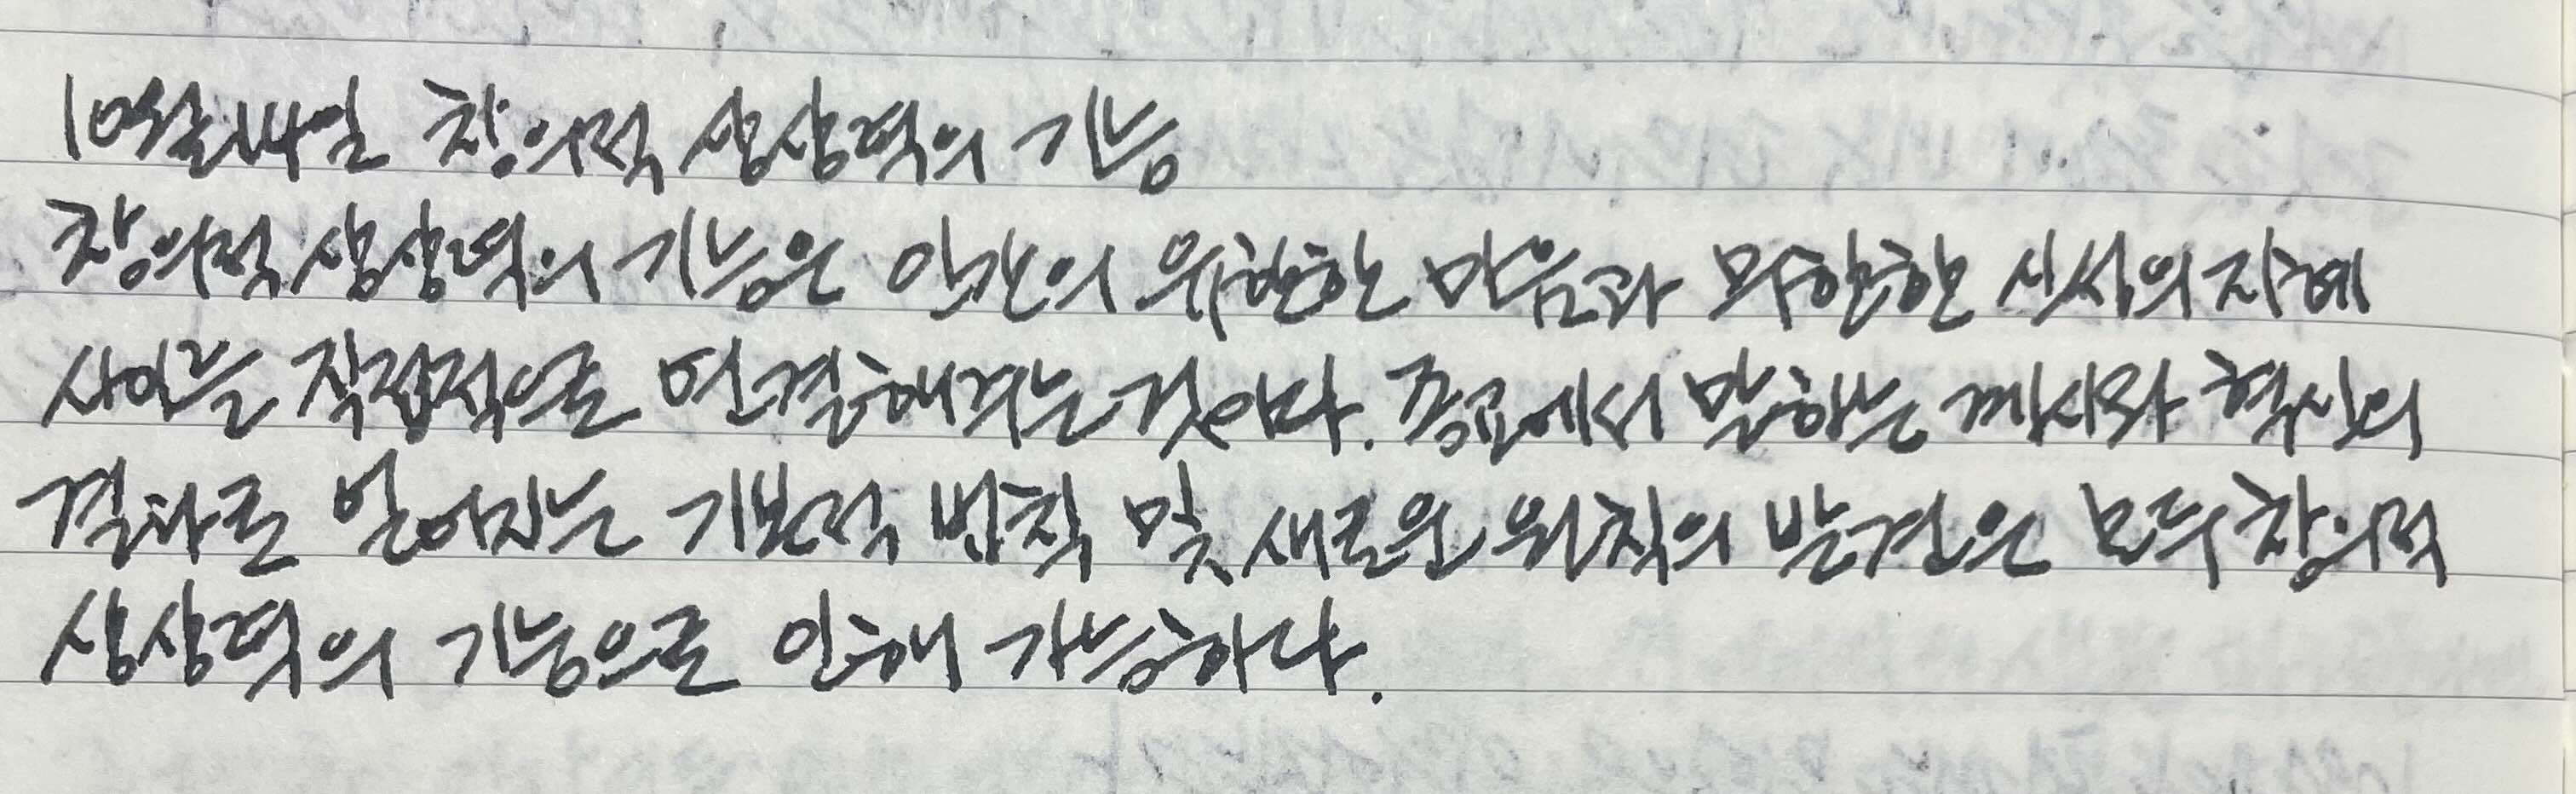 10월14일 창의적 상상력의 기능
창의적 상상력의 기능은 인간의 유한한 마음과 무한한 신의 지혜
사이를 직접적으로 연결해주는 것이다. 종교에서 말하는 계시와 혁신의
결과로 얻어지는 기본적 법칙 및 새로운 원칙의 발견은 모두 창의적
상상력의 기능으로 인해 가능하다.